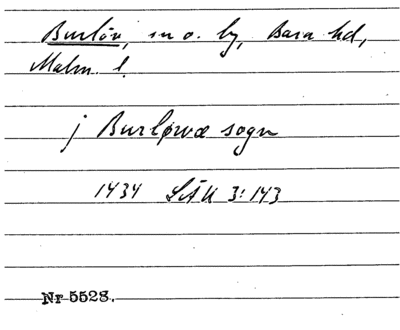 Burlöv, sn o. by, Bara hd,
Malm. l.
j Burløwæ sogn
1434 SÅU 3:143
Nr 5528.